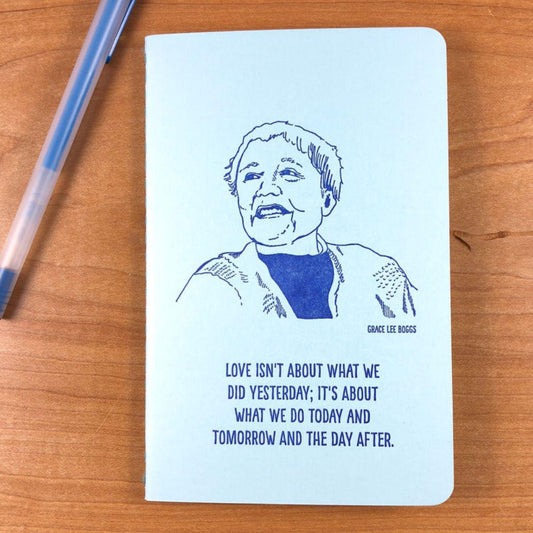 GRACE LEE BOGGS
LOVE ISN'T ABOUT WHAT WE
DID YESTERDAY; IT'S ABOUT
WHAT WE DO TODAY AND
TOMORROW AND THE DAY AFTER.